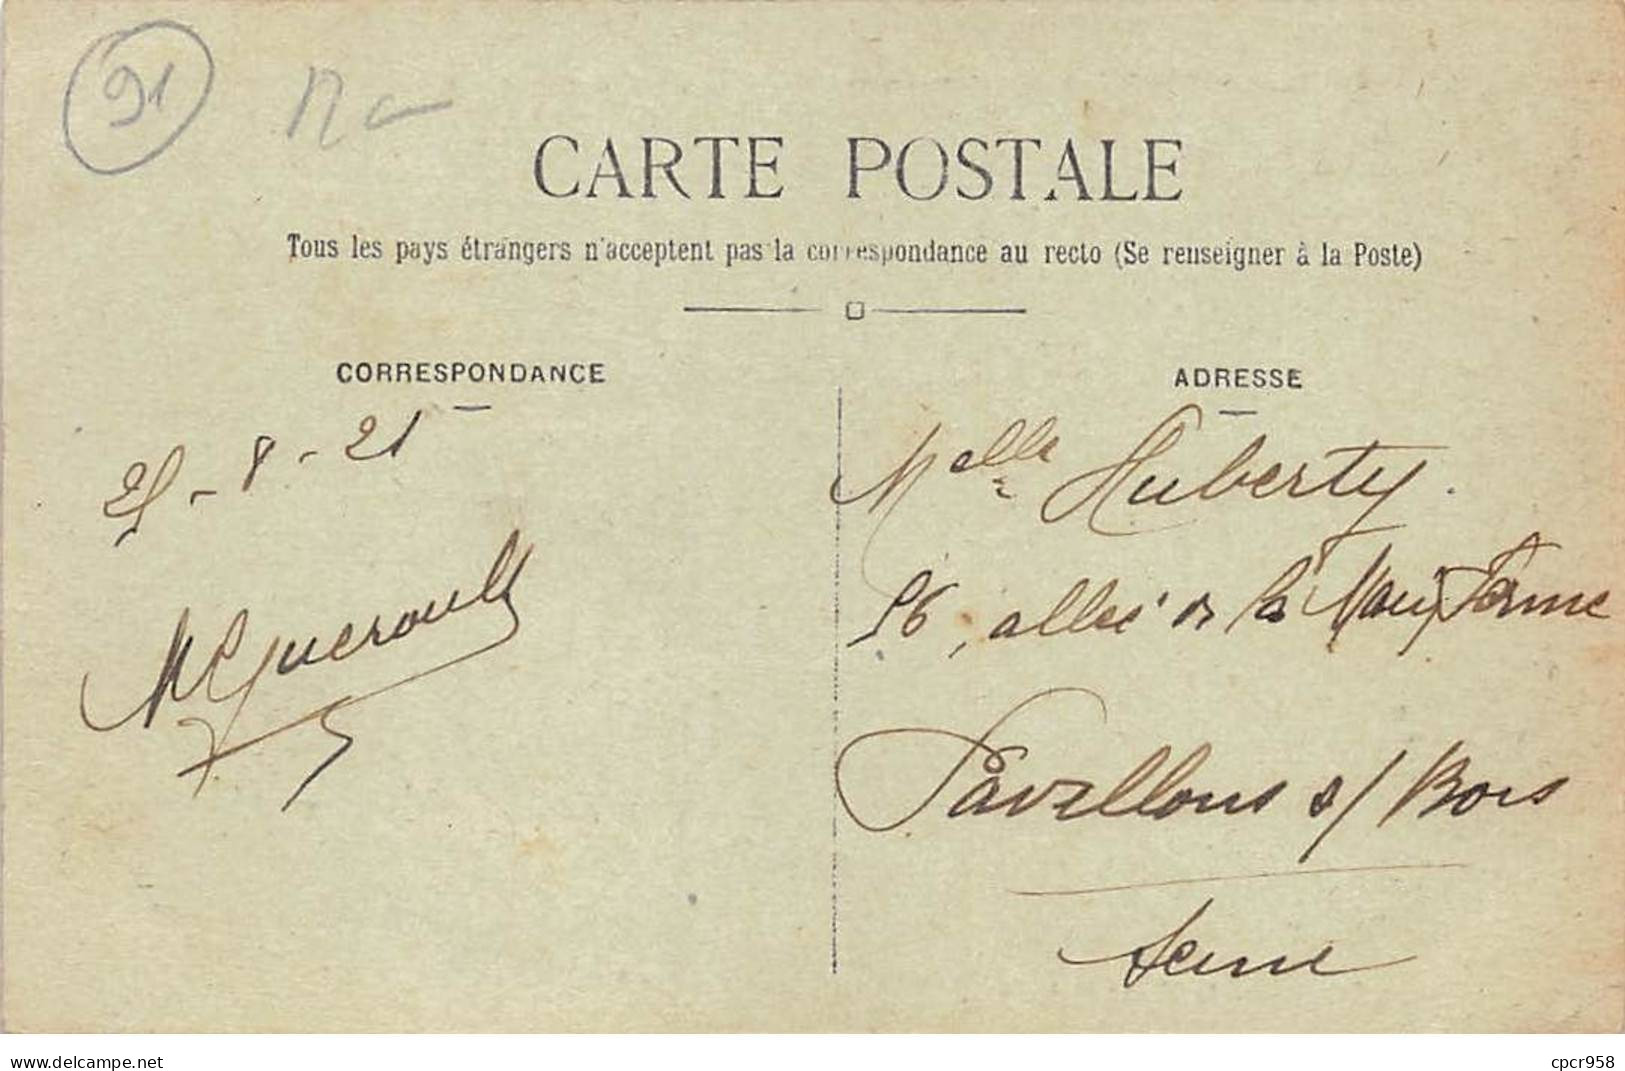 91
CARTE POSTALE
Tous les pays étrangers n'acceptent pas la correspondance au recto (Se renseigner à la Poste)
CORRESPONDANCE
ADRESSE
25-8-21
MGueroult
Melle Huberty.
96, allée de la Maij Ferme
Pavillons s/ Bois
Seine
www.delcampe.net
cpcr958